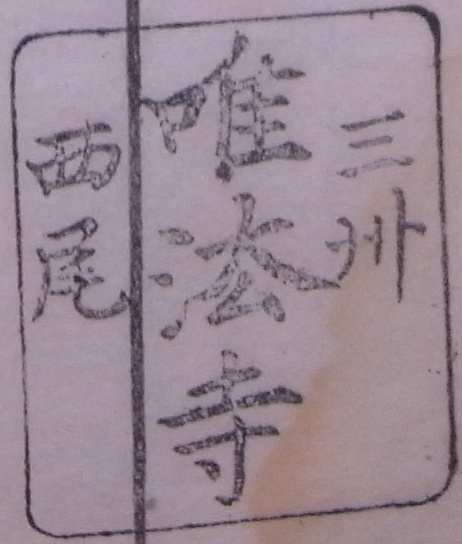 三州
唯法寺
西尾